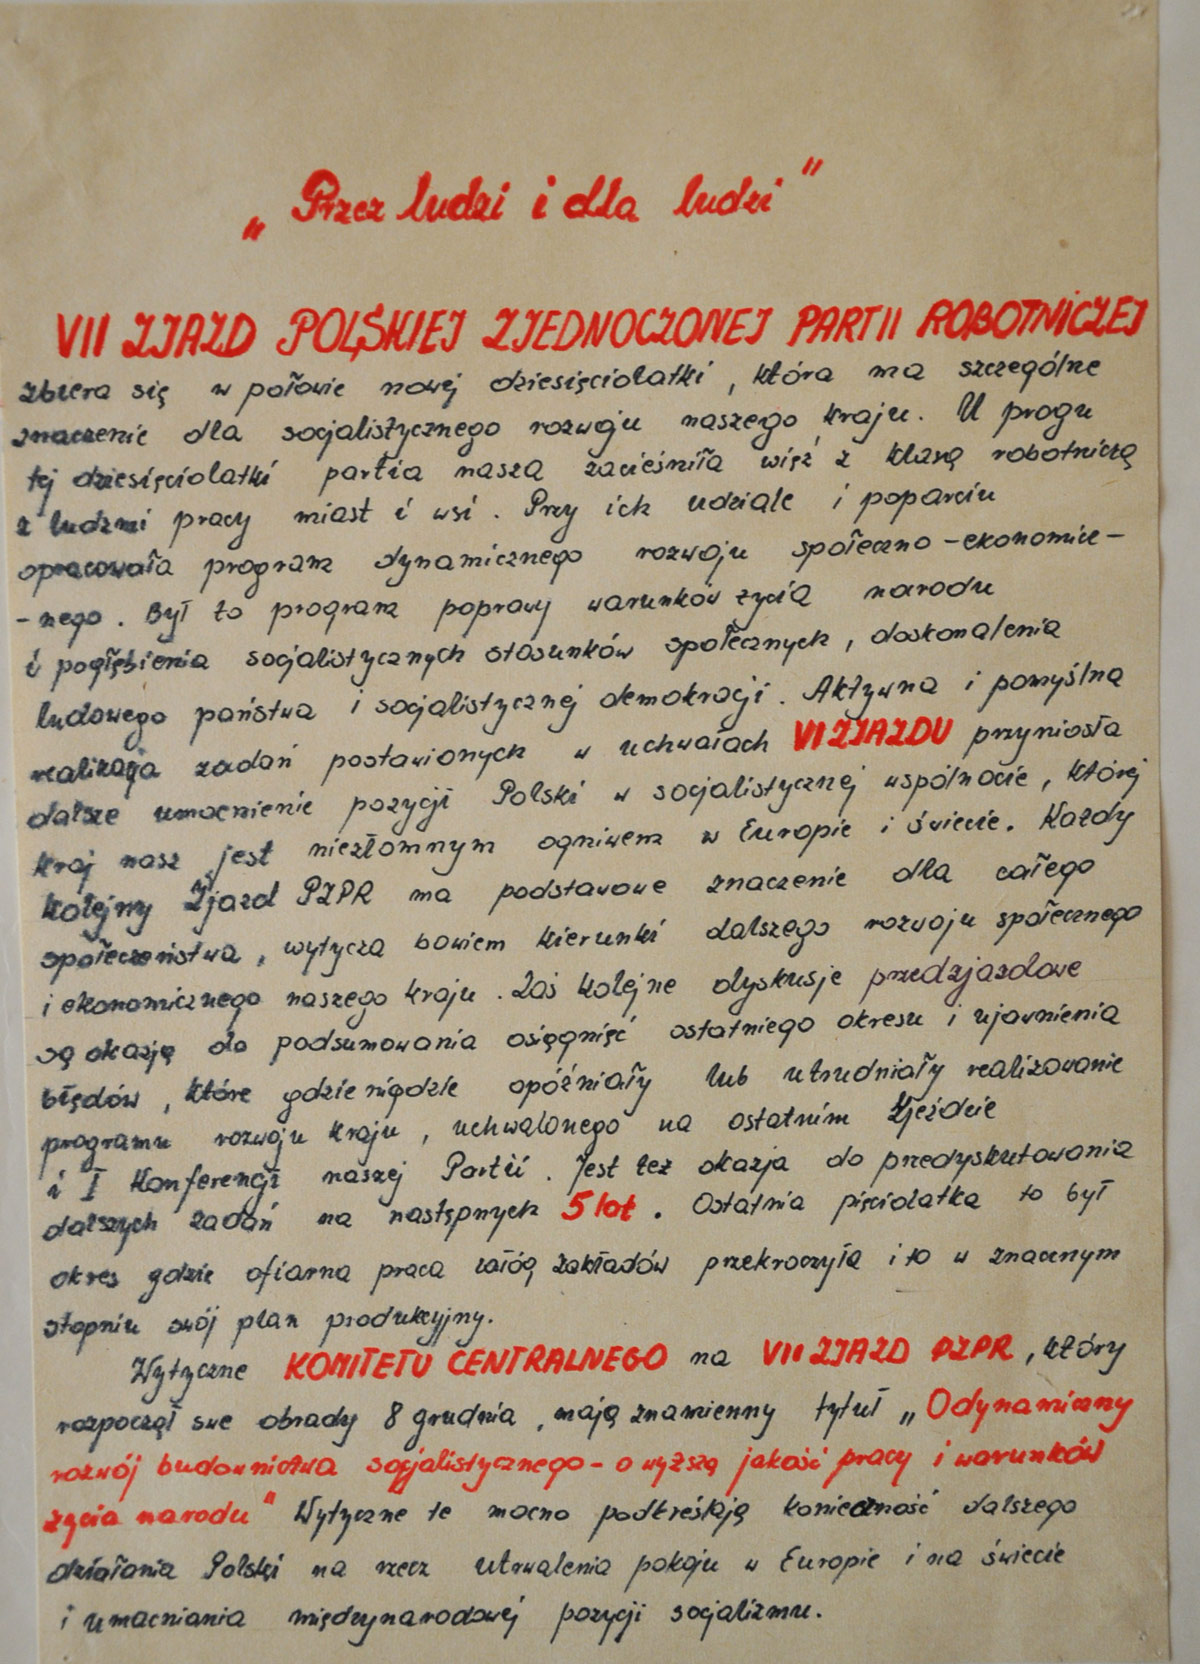 „Przez ludzi i dla ludzi"
VII ZJAZD POLSKIEJ ZJEDNOCZONEJ PARTII ROBOTNICZEJ
zbiera się w połowie nowej dziesięciolatki, która ma szczególne
znaczenie dla socjalistycznego rozwoju naszego kraju. U progu
tej dziesięciolatki partia nasza zacieśniła więź z klasą robotniczą
z ludzmi pracy miast i wsi. Przy ich udziale i poparciu
opracowała program dynamicznego rozwoju społeczno-ekonomicz-
-nego. Był to program poprawy warunków życia narodu
i pogłębienia socjalistycznych stosunków społecznych, doskonalenia
ludowego państwa i socjalistycznej demokracji. Aktywna i pomyślna
realizacja zadań postawionych w uchwałach VI ZJAZDU przyniosła
dalsze umocnienie pozycji Polski w socjalistycznej wspólnocie, której
kraj nasz jest niezłomnym ogniwem w Europie i świecie. Każdy
kolejny Zjazd PZPR ma podstawowe znaczenie dla całego
społeczeństwa, wytycza bowiem kierunki dalszego rozwoju społecznego
i ekonomicznego naszego kraju. Zaś kolejne dyskusje przedzjazdowe
są okazją do podsumowania osiągnięć ostatniego okresu i ujawnienia
błędów, które gdzieniegdzie opóźniały lub utrudniały realizowanie
programu rozwoju kraju, uchwalonego na ostatnim Zjeździe
i I Konferencji naszej Partii. Jest też okazja do przedyskutowania
dalszych zadań na następnych 5 lat. Ostatnia pięciolatka to był
okres gdzie ofiarna praca załóg zakładów przekroczyła i to w znacznym
stopniu swój plan produkcyjny.
Wytyczne KOMITETU CENTRALNEGO na VII ZJAZD PZPR, który
rozpoczął swe obrady 8 grudnia, mają znamienny tytuł „O dynamiczny
rozwój budownictwa socjalistycznego - o wyższą jakość pracy i warunków
życia narodu" Wytyczne te mocno podkreślają konieczność dalszego
działania Polski na rzecz utrwalenia pokoju w Europie i na świecie
i umacniania międzynarodowej pozycji socjalizmu.